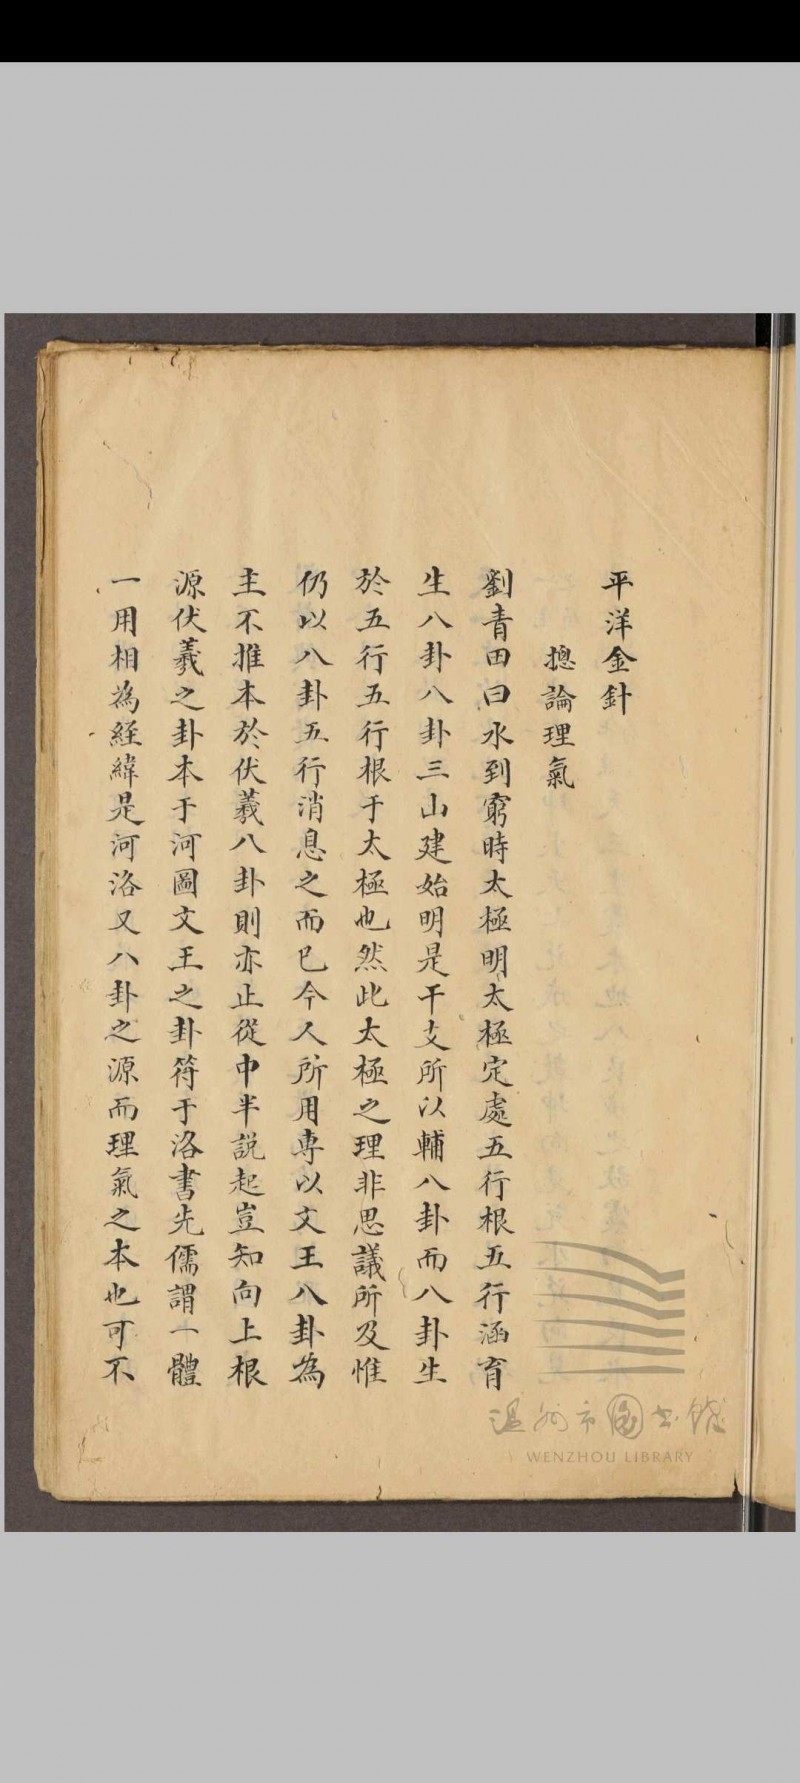 平洋金針
摠論理氣
劉青田曰水到窮時太極明太極定處五行根五行涵育
生八卦八卦三山建始明是干支所以輔八卦而八卦生
於五行五行根于太極也然此太極之理非思議所及惟
仍以八卦五行消息之而已今人所用專以文王八卦為
主不推本於伏羲八卦則亦止從中半説起豈知向上根
源伏羲之卦本于河圖文王之卦符于洛書先儒謂一體
一用相為經緯是河洛又八卦之源而理氣之本也可不
温州市图书馆
WENZHOU LIBRARY